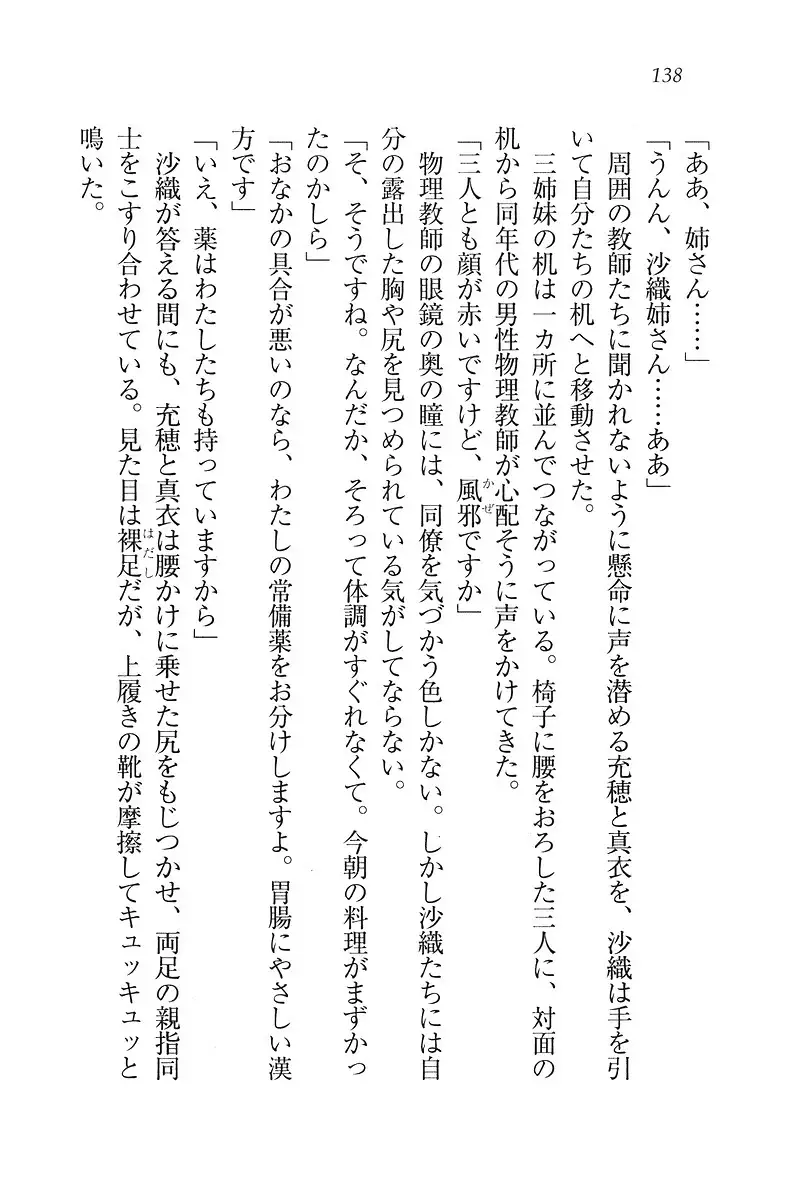 138
「ああ、姉さん……」
「うんん、沙織姉さん……ああ」
　周囲の教師たちに聞かれないように懸命に声を潜める充穂と真衣を、沙織は手を引
いて自分たちの机へと移動させた。
　三姉妹の机は一カ所に並んでつながっている。椅子に腰をおろした三人に、対面の
机から同年代の男性物理教師が心配そうに声をかけてきた。
「三人とも顔が赤いですけど、風邪ですか」
　物理教師の眼鏡の奥の瞳には、同僚を気づかう色しかない。しかし沙織たちには自
分の露出した胸や尻を見つめられている気がしてならない。
「そ、そうですね。なんだか、そろって体調がすぐれなくて。今朝の料理がまずかっ
たのかしら」
「おなかの具合が悪いのなら、わたしの常備薬をお分けしますよ。胃腸にやさしい漢
方です」
「いえ、薬はわたしたちも持っていますから」
　沙織が答える間にも、充穂と真衣は腰かけに乗せた尻をもじつかせ、両足の親指同
士をこすり合わせている。見た目は裸足だが、上履きの靴が摩擦してキュッキュッと
鳴いた。